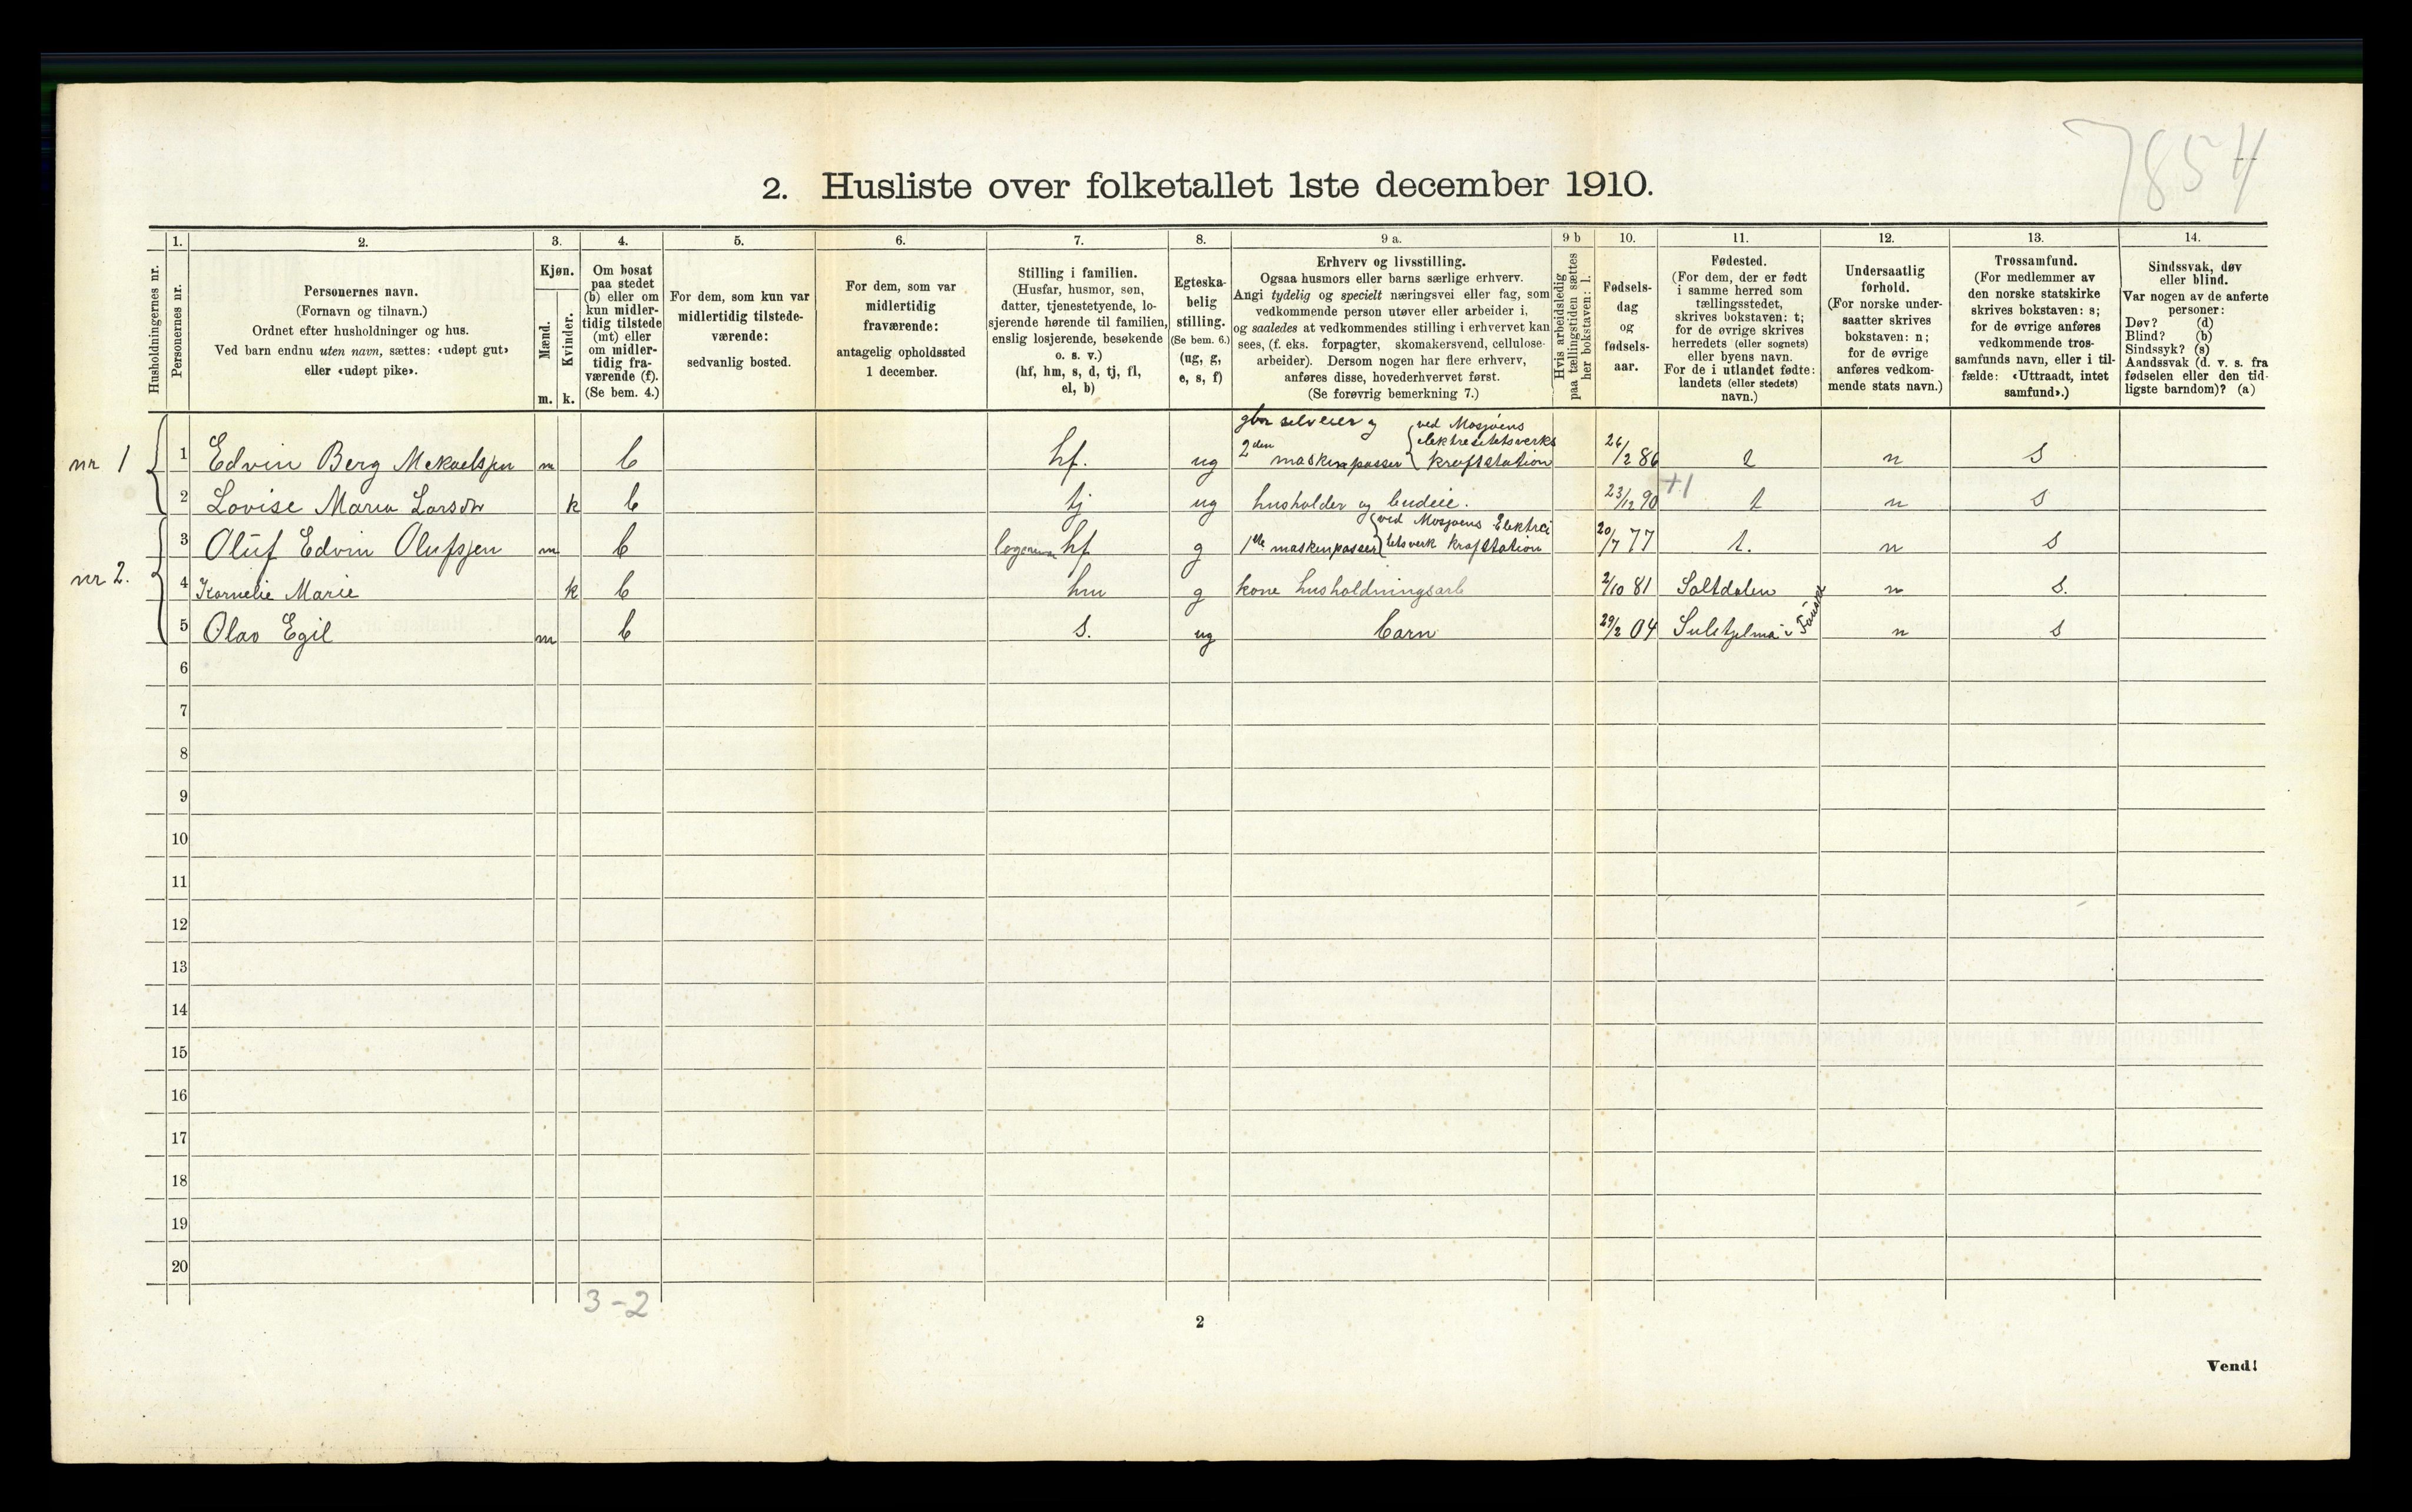 7854
2. Husliste over folketallet 1ste december 1910.
Husholdningernes nr.
1.
Personernes nr.
2.
Personernes navn.
(Fornavn og tilnavn.)
Ordnet efter husholdninger og hus.
Ved barn endnu uten navn, sættes: «udøpt gut»
eller «udøpt pike».
3.
Kjøn.
Mænd.
Kvinder.
m. k.
4.
Om bosat
paa stedet
(b) eller om
kun midler-
tidig tilstede
(mt) eller
om midler-
tidig fra-
værende (f).
(Se bem. 4.)
5.
For dem, som kun var
midlertidig tilstede-
værende:
sedvanlig bosted.
6.
For dem, som var
midlertidig
fraværende:
antagelig opholdssted
1 december.
7.
Stilling i familien.
(Husfar, husmor, søn,
datter, tjenestetyende, lo-
sjerende hørende til familien,
enslig losjerende, besøkende
o. s. v.)
(hf, hm, s, d, tj, fl,
el, b)
8.
Egteska-
belig
stilling.
(Se bem. 6.)
(ug, g,
e, s, f)
9 a.
Erhverv og livsstilling.
Ogsaa husmors eller barns særlige erhverv.
Angi tydelig og specielt næringsvei eller fag, som
vedkommende person utøver eller arbeider i,
og saaledes at vedkommendes stilling i erhvervet kan
sees, (f. eks. forpagter, skomakersvend, cellulose-
arbeider). Dersom nogen har flere erhverv,
anføres disse, hovederhvervet først.
(Se forøvrig bemerkning 7.)
9 b
Hvis arbeidsledig
paa tællingstiden sættes
her bokstaven: l.
10.
Fødsels-
dag
og
fødsels-
aar.
11.
Fødested.
(For dem, der er født
i samme herred som
tællingsstedet,
skrives bokstaven: t;
for de øvrige skrives
herredets (eller sognets)
eller byens navn.
For de i utlandet fødte:
landets (eller stedets)
navn.)
12.
Undersaatlig
forhold.
(For norske under-
saatter skrives
bokstaven: n;
for de øvrige
anføres vedkom-
mende stats navn.)
13.
Trossamfund.
(For medlemmer av
den norske statskirke
skrives bokstaven: s;
for de øvrige anføres
vedkommende tros-
samfunds navn, eller i til-
fælde: «Uttraadt, intet
samfund».)
14.
Sindssvak, døv
eller blind.
Var nogen av de anførte
personer:
Døv? (d)
Blind? (b)
Sindssyk? (s)
Aandssvak (d. v. s. fra
fødselen eller den tid-
ligste barndom)? (a)
gbr selveier og ved Mosjøens
elektresitetsverks
nr 1 1 Edvin Berg Mekaelsen m b hf. ug 2den maskinpasser kraftstation 26/2 86 t n s
2 Lovise Maria Larsdtr k b tj ug husholder og budeie. 23/12 90 +1 t n s
ved Mosjøens Elektrici
3 Oluf Edvin Olufsen m b hf g 1ste maskinpasser tetsverk kraftstation 20/7 77 t. n s
nr 2. 4 Kornelie Marie k b hm g kone husholdningsarb 2/10 81 Saltdalen n s.
5 Olav Egil m b s. ug barn 29/2 04 Sulitjelma i Fauske n s
6
7
8
9
10
11
12
13
14
15
16
17
18
19
20
3-2
2
Vend!